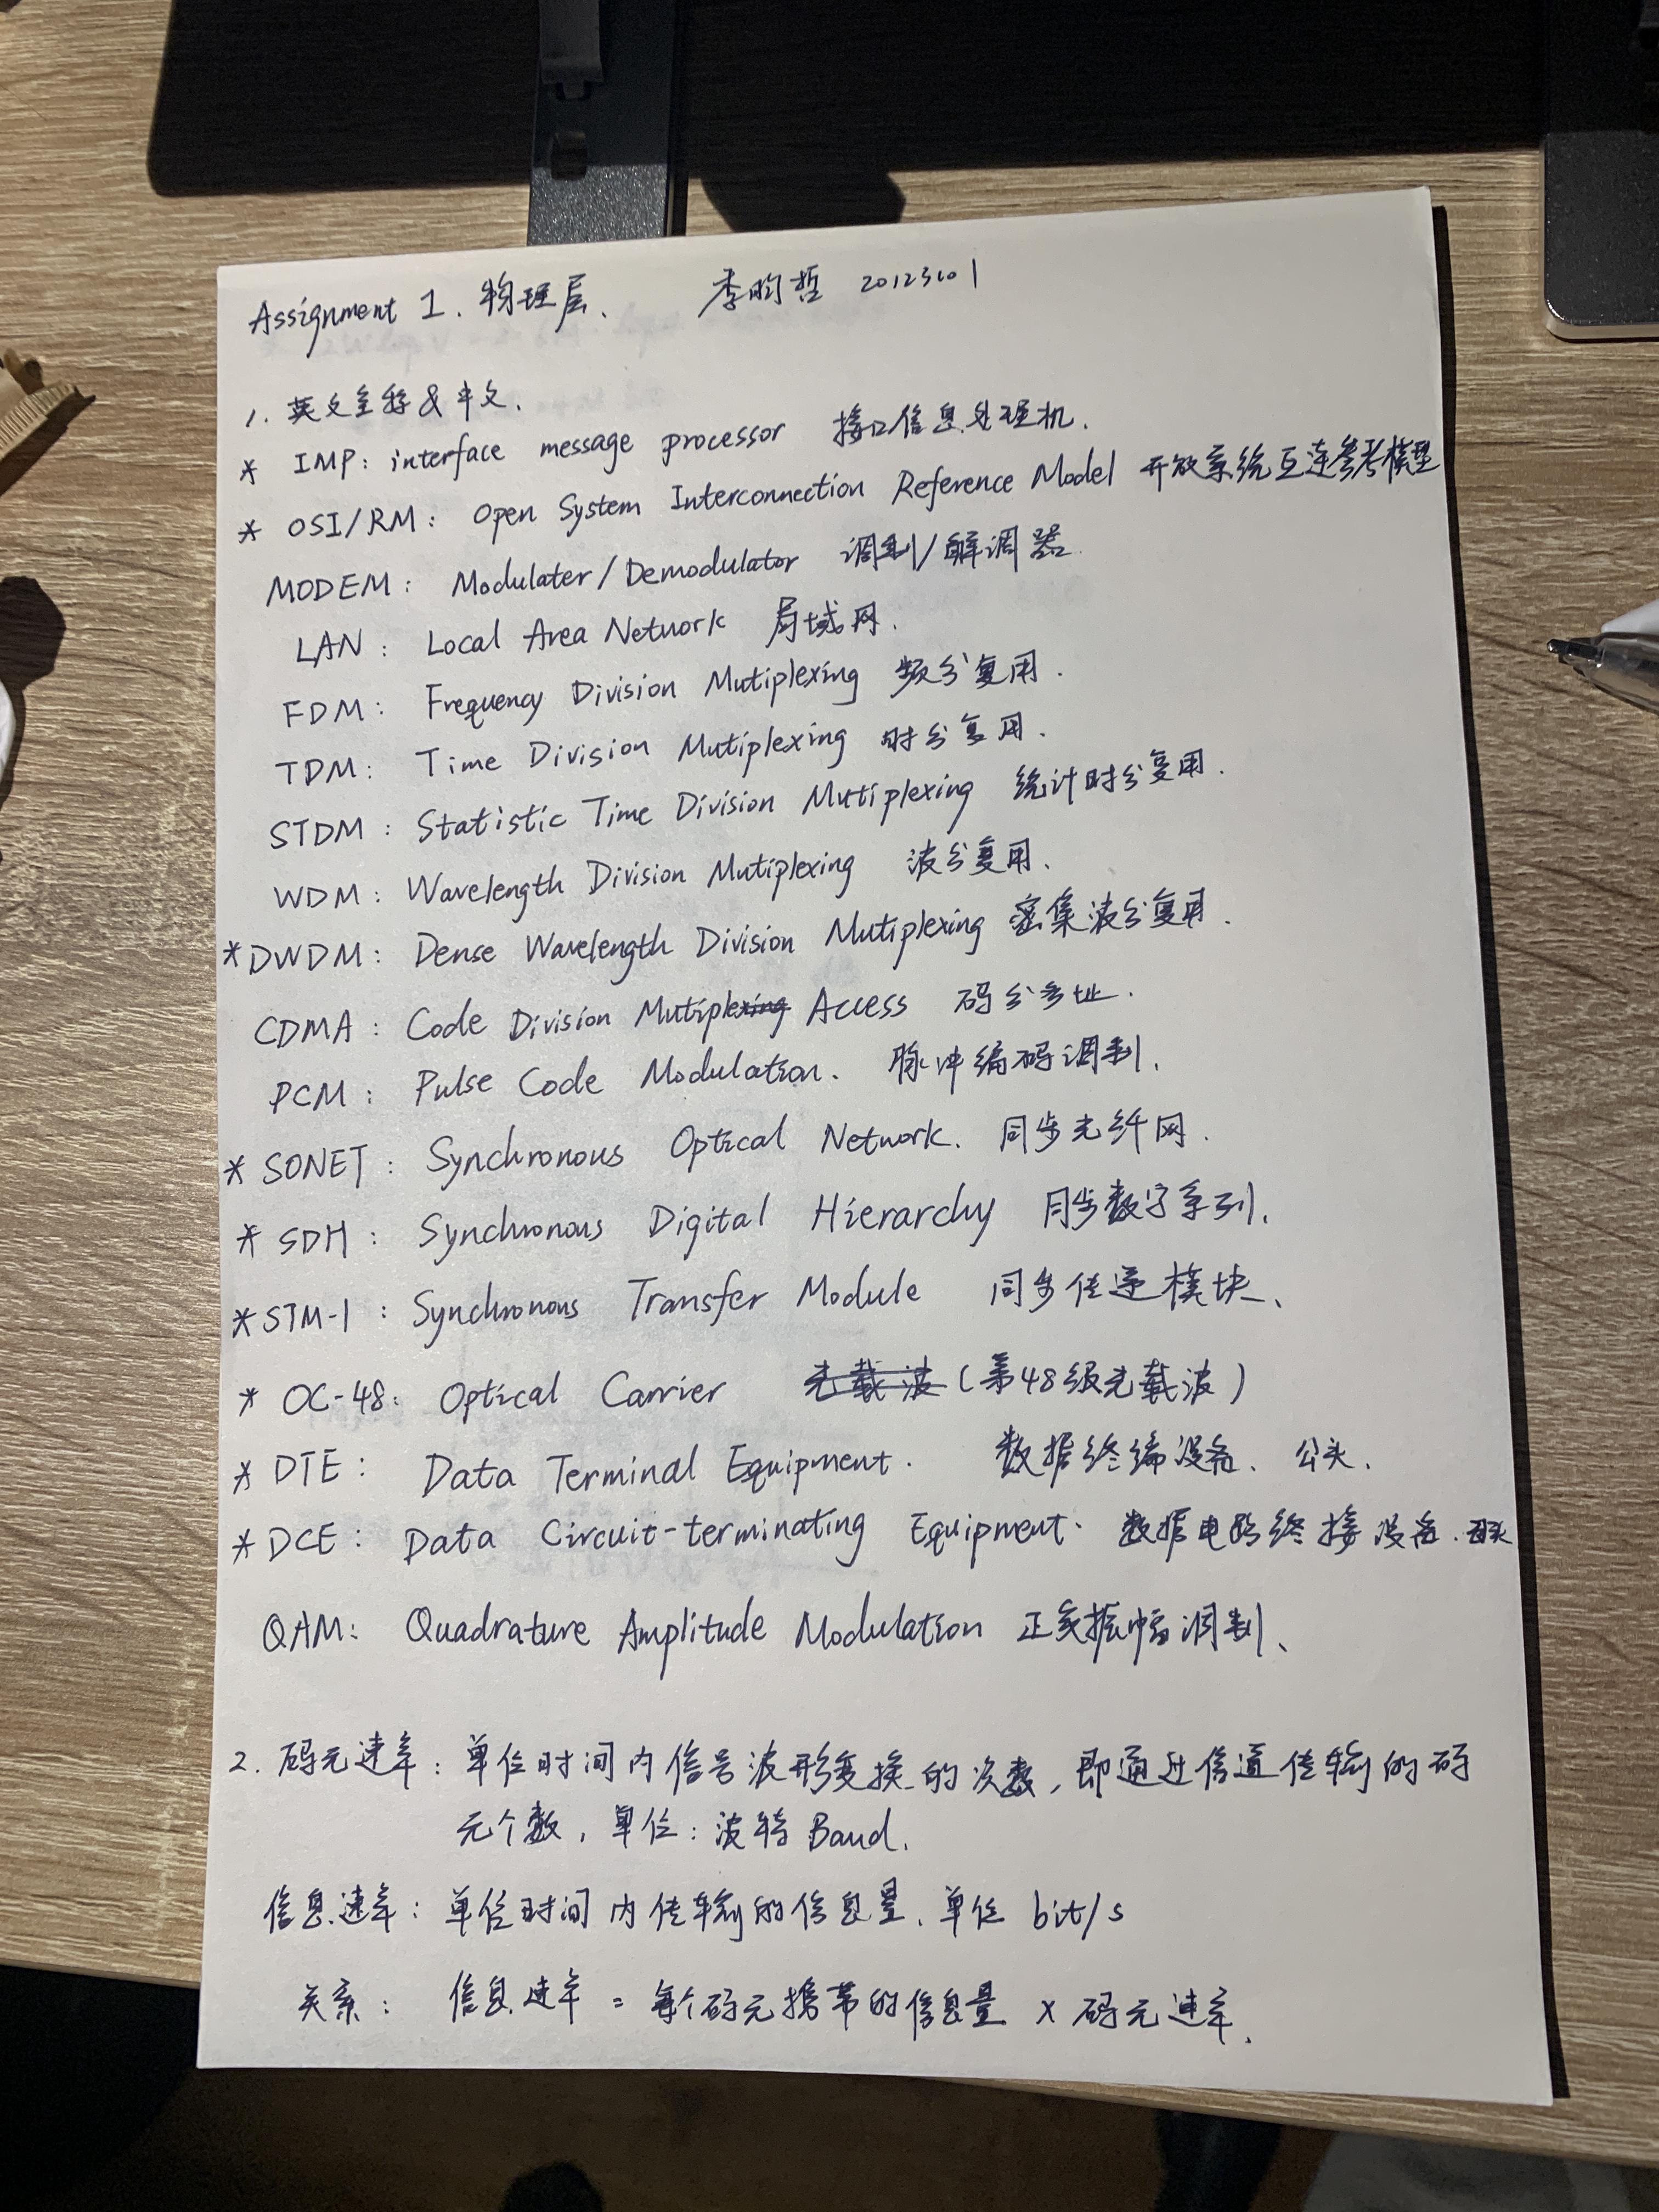 Assignment 1. 物理层. 李昀哲 20123101
1. 英文全称&中文.
* IMP: interface message processor 接口信息处理机.
* OSI/RM: Open System Interconnection Reference Model 开放系统互连参考模型
MODEM: Modulater/Demodulator 调制/解调器
LAN: Local Area Network 局域网.
FDM: Frequency Division Mutiplexing 频分复用.
TDM: Time Division Mutiplexing 时分复用.
STDM: Statistic Time Division Mutiplexing 统计时分复用.
WDM: Wavelength Division Mutiplexing 波分复用.
* DWDM: Dense Wavelength Division Mutiplexing 密集波分复用.
CDMA: Code Division Mutiple Access 码分多址.
PCM: Pulse Code Modulation. 脉冲编码调制.
* SONET: Synchronous Optical Network. 同步光纤网.
* SDH: Synchronous Digital Hierarchy 同步数字系列.
* STM-1: Synchronous Transfer Module 同步传递模块、
* OC-48: Optical Carrier 光载波(第48级光载波)
* DTE: Data Terminal Equipment. 数据终端设备、公头.
* DCE: Data Circuit-terminating Equipment. 数据电路终接设备.母头
QAM: Quadrature Amplitude Modulation 正交振幅调制、
2. 码元速率: 单位时间内信号波形变换的次数, 即通过信道传输的码
元个数, 单位: 波特 Baud.
信息速率: 单位时间内传输的信息量、单位 bit/s
关系: 信息速率 = 每个码元携带的信息量 × 码元速率.